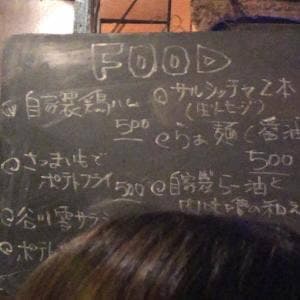 FOOD
自家製鶏ハム
500
さつまいもで
ポテトフライ
500
谷川雪サラ
ポテト
サルシッチャ2本
(生ソーセージ)
500
らぁ麺(醤油
自家製ラー油と
の和え